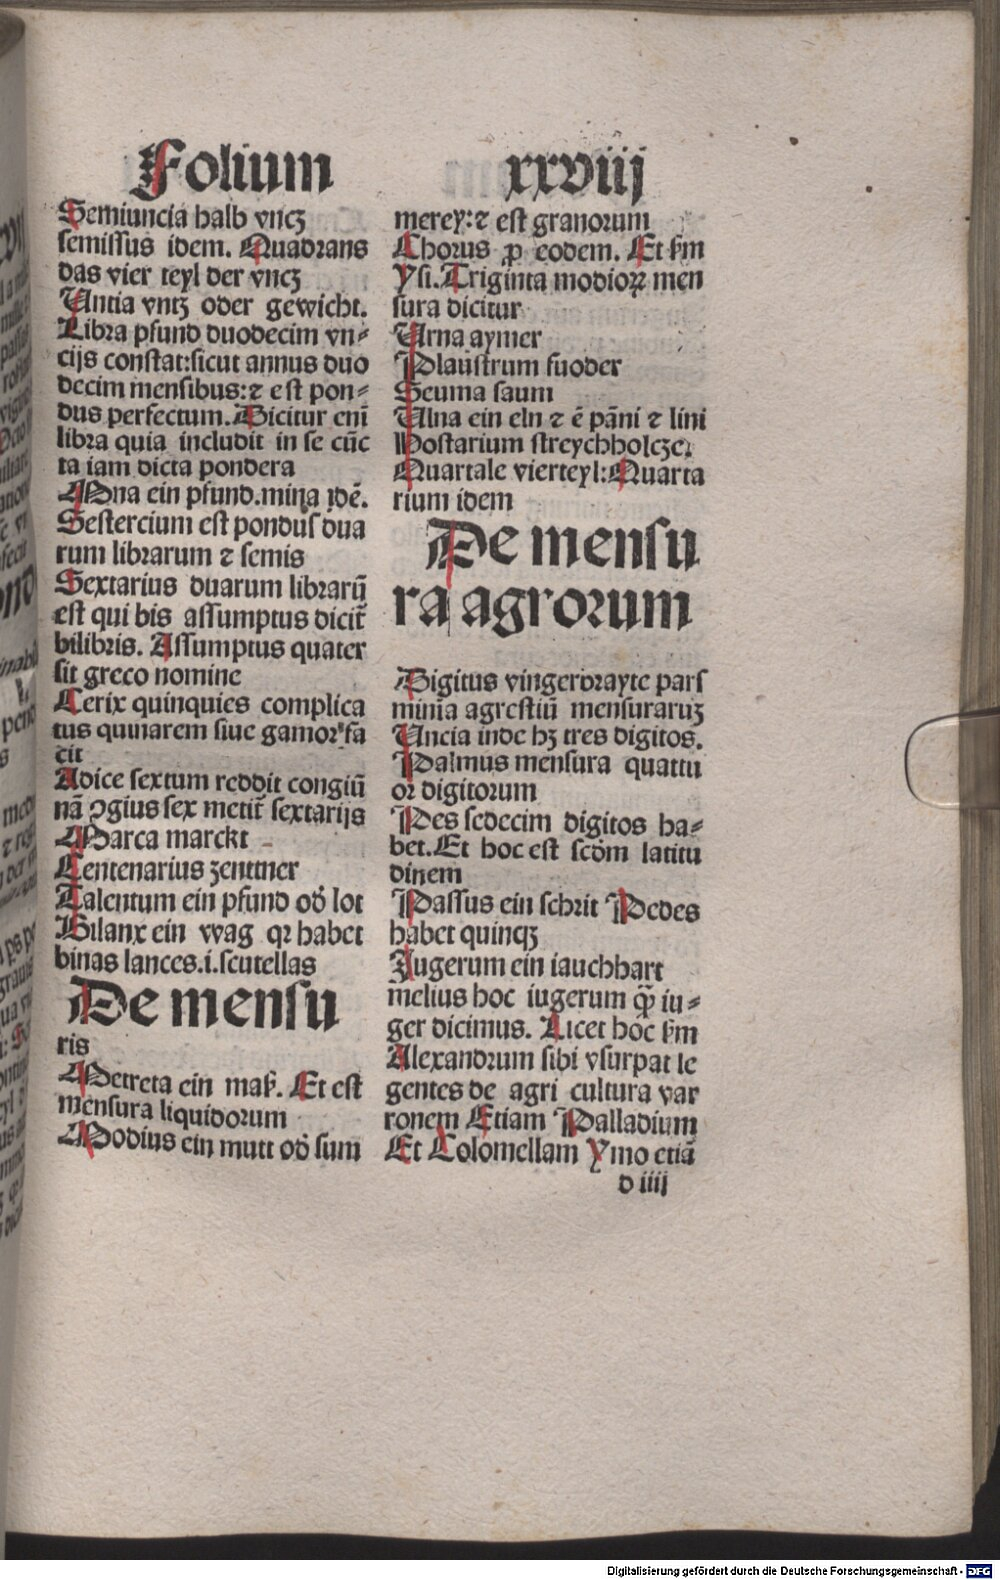 Folium xxviiij
Semiuncia halb vncz
semissus idem. Quadrans
das vier teyl der vncz
Untia vntz oder gewicht.
Libra pfund duodecim vn⸗
cijs constat:sicut annus duo
decim mensibus:⁊ est pon⸗
dus perfectum. Dicitur enī
libra quia includit in se cūc
ta iam dicta pondera
Mna ein pfund.mina idē.
Sestercium est pondus dua
rum librarum ⁊ semis
Sextarius duarum librarū
est qui bis assumptus dicit̃
bilibris. Assumptus quater
fit greco nomine
Cerix quinquies complica
tus quinarem siue gamor' fa
cit
Adice sextum reddit congiū
nā ↄgius sex metit̃ sextarijs
Marca marckt
Centenarius zenttner
Talentum ein pfund od̓ lot
Bilanx ein wag qꝛ habet
binas lances.i.scutellas
De mensu
ris
Metreta ein maß. Et est
mensura liquidorum
Modius ein mutt od̓ sum
merey:⁊ est granorum
Chorus ꝓ eodem. Et ẜm
Ysi. Triginta modioꝝ men
sura dicitur
Urna aymer
Plaustrum fuoder
Seuma saum
Ulna ein eln ⁊ ē pāni ⁊ lini
Hostarium streychholcze
Quartale vierteyl: Quarta
rium idem
De mensu
ra agrorum
Digitus vingerbrayte pars
minīa agrestiū mensuraruꝫ
Uncia inde hꝫ tres digitos.
Palmus mensura quattu
or digitorum
Pes sedecim digitos ha⸗
bet. Et hoc est scd̓m latitu
dinem
Passus ein schrit Pedes
habet quinqꝫ
Jugerum ein iauchhart
melius hoc iugerum qꝙ iu⸗
ger dicimus. Licet hoc ẜm
Alexandrum sibi vsurpat le
gentes de agri cultura var
ronem Etiam Palladium
Et Colomellam Ymo etiā
d iiij
Digitalisierung gefördert durch die Deutsche Forschungsgemeinschaft - DFG